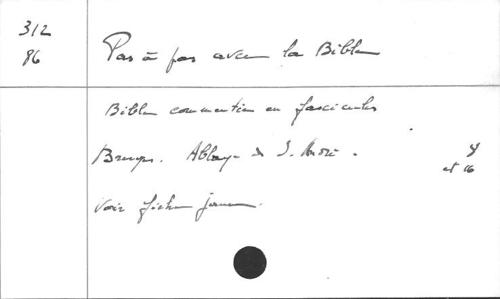 312
86
Pas à pas avec la Bible
Bible commentée en fascicules
Bruges. Abbaye de S. André.
et 16
Voir fiche jaune.